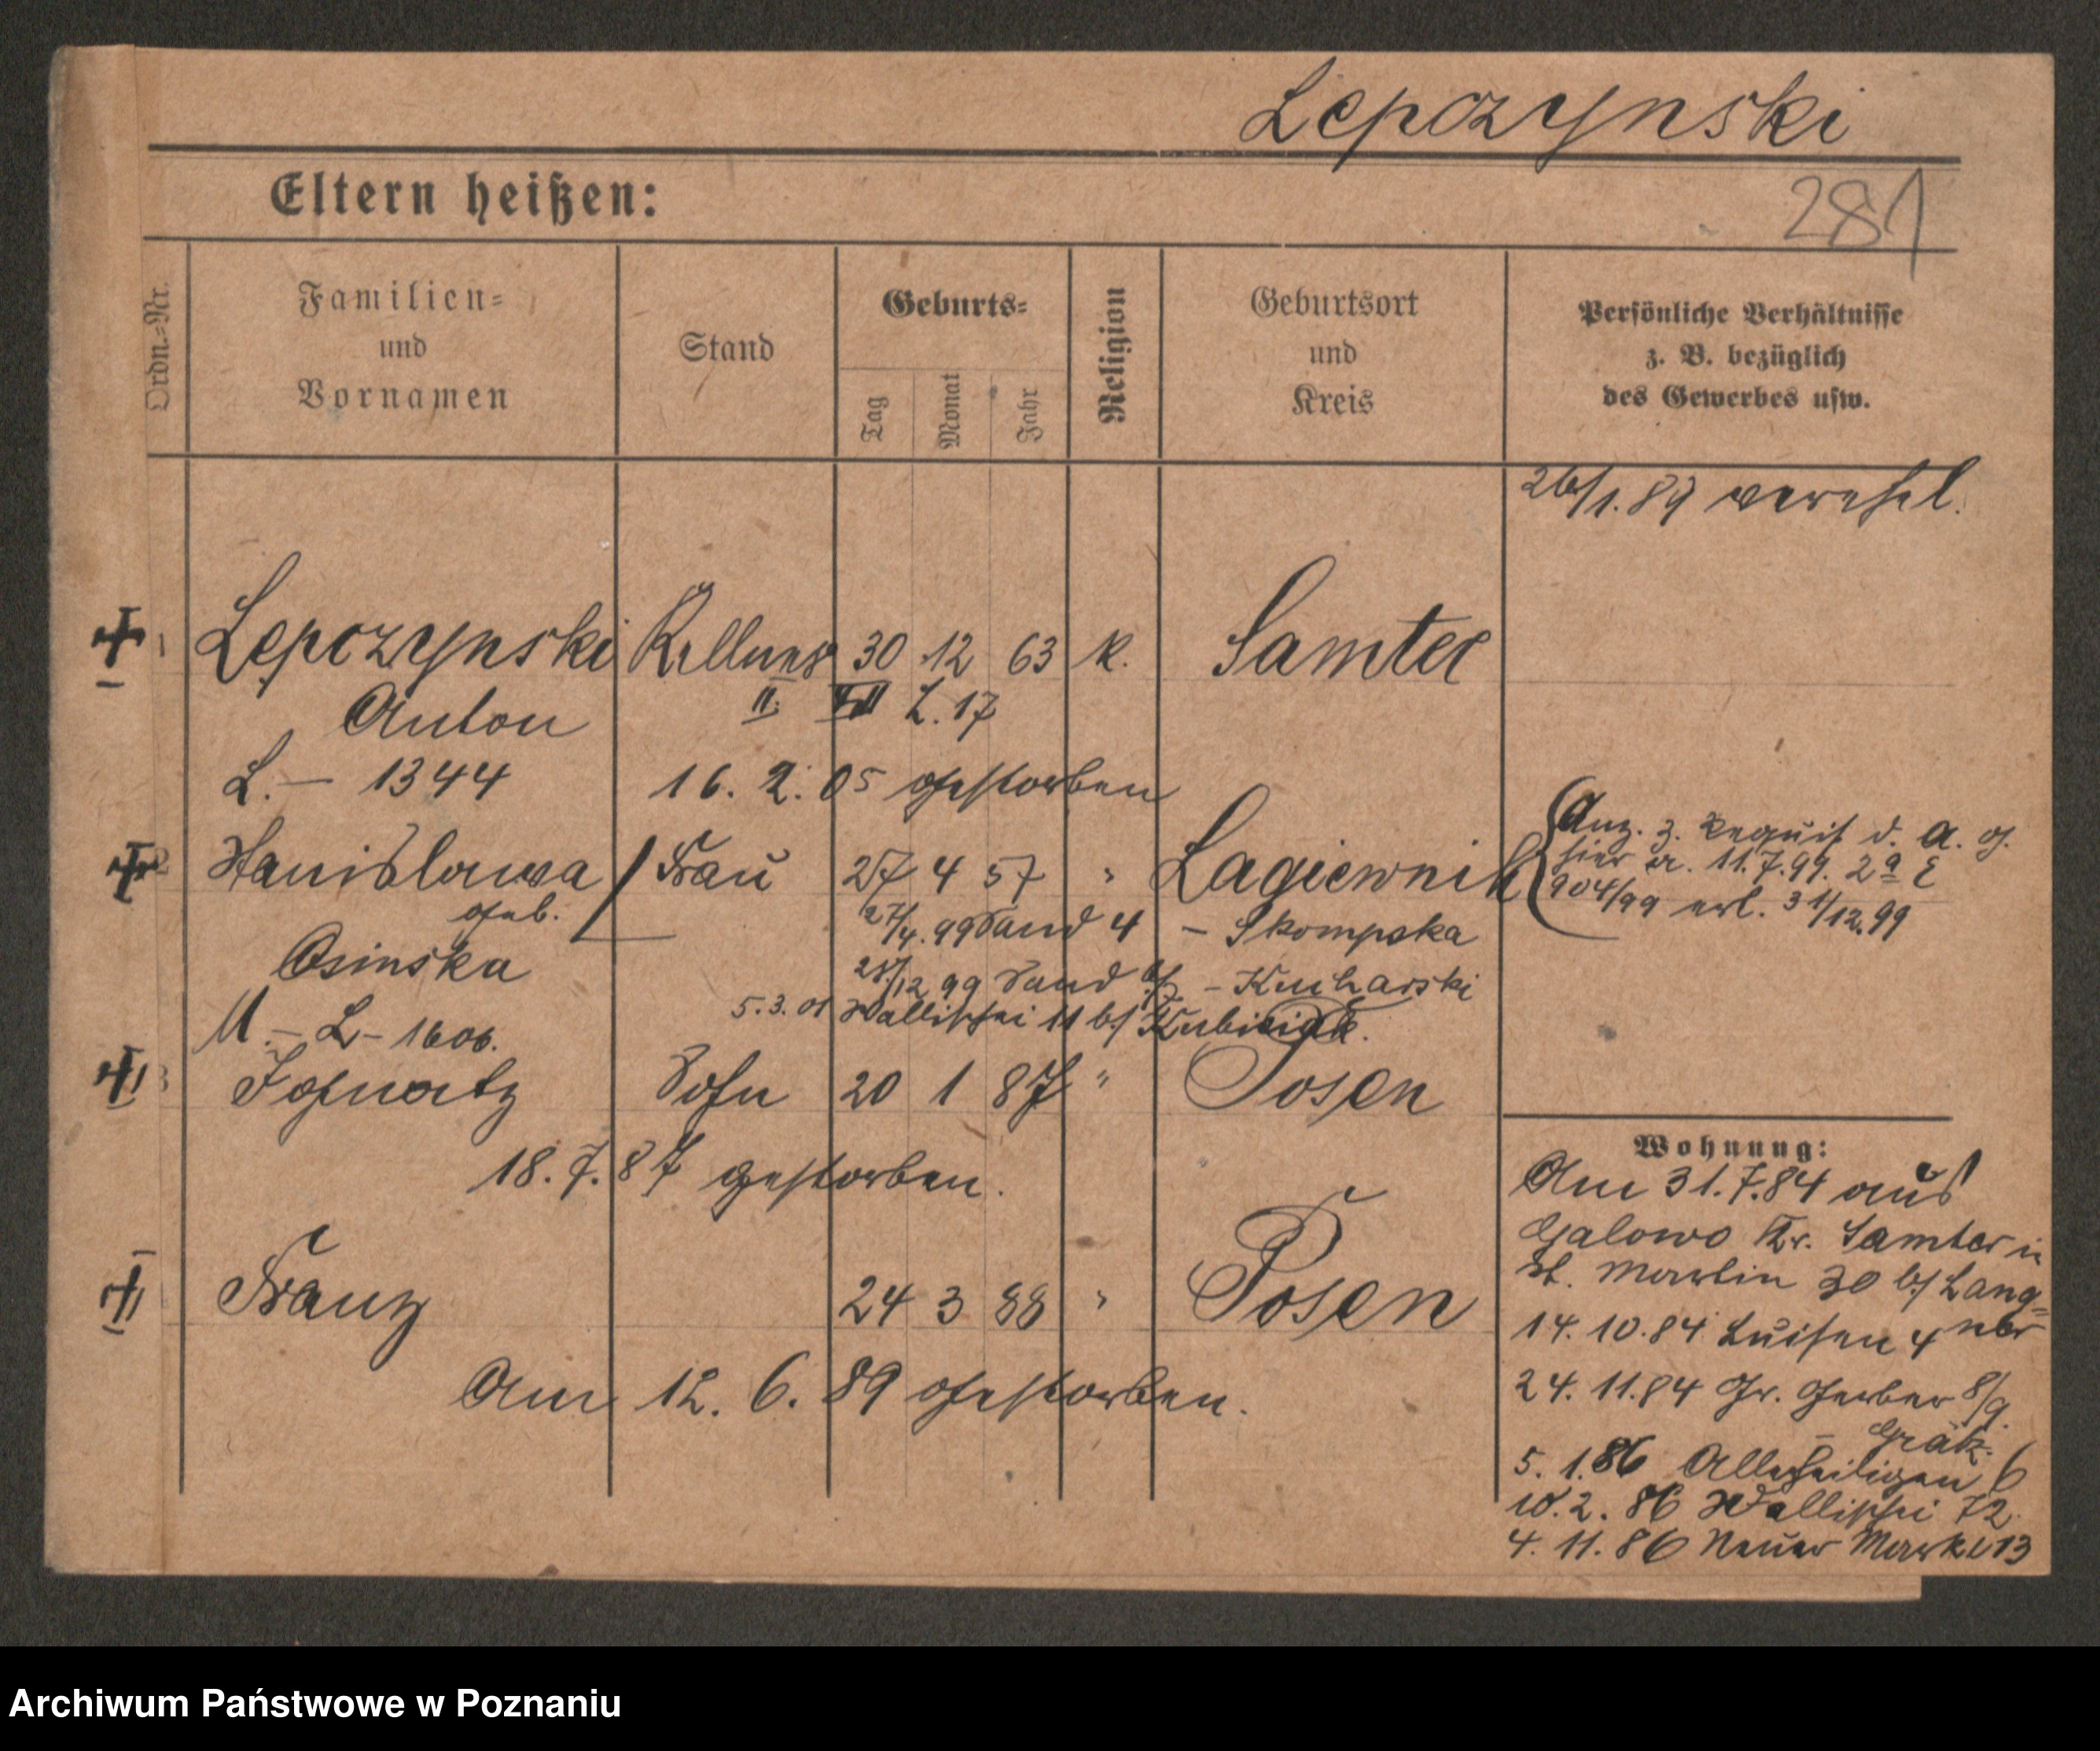 Lepczynski
Eltern heißen:
281
Ordn.-Nr.
Familien-
und
Vornamen
Stand
Geburts-
Tag
Monat
Jahr
Religion
Geburtsort
und
Kreis
Persönliche Verhältnisse
z. B. bezüglich
des Gewerbes usw.
26/1.89
1 Lepczynski Kellner 30 12 63 k. Samter
Anton II. L. 17
L. – 1344 16. 2. 05 gestorben
2 Stanislawa Frau 27 4 57 " Lagiewnik
geb.
Osinska
27/4.99 Sand 4 – Skompska
28/12 99 Sand – Kucharski
5.3.01 Wallischei 11 b/ Kubiciak.
M. – L – 1606.
Anz. z. Requis. d. A. G.
hier a. 11.7.99. 2a E
904/99 erl. 31/12.99
3 Ignatz Sohn 20 1 87 " Posen
18. 7. 87 gestorben.
Franz 24 3 88 " Posen
Am 12. 6. 89 gestorben.
Wohnung:
Am 31.7.84 aus
Galowo Kr. Samter in
St. Martin 30 b/ Lang-
ner
14. 10. 84 Luisen 4
24. 11. 84 Gr. Gerber 8/9.
Grätz.
5. 1. 86 Allerheiligen 6
10. 2. 86 Wallischei 72.
4. 11. 86 Neuer Markt 13
Archiwum Państwowe w Poznaniu